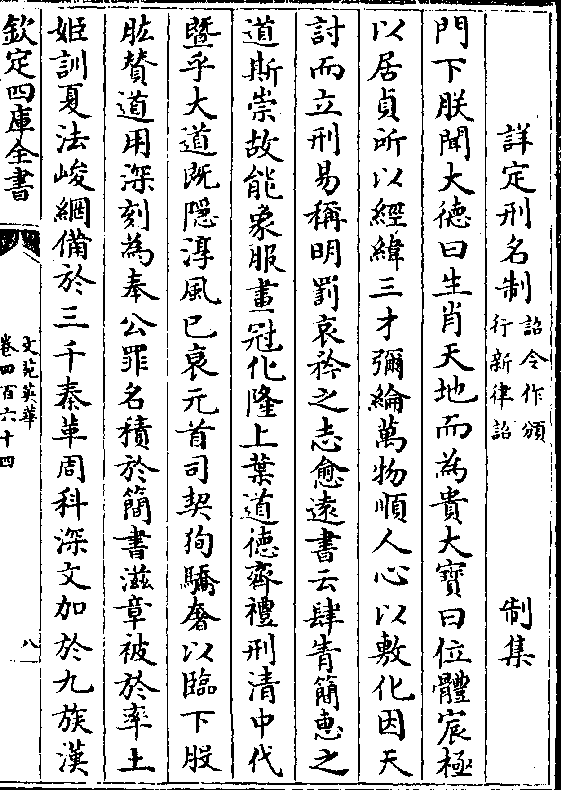 詳定刑名制 詔令作頒行新律詔 制集
門下朕聞大德曰生肖天地而為貴大寳曰位體宸極
以居貞所以經緯三才彌綸萬物順人心以敷化因天
討而立刑易稱明罰哀矜之志愈逺書云肆眚簡恵之
道斯崇故能象服畫冠化隆上葉道徳齊禮刑清中代
暨乎大道既隠淳風已衰元首司契狥驕奢以臨下股
肱賛道用深刻為奉公罪名積於簡書滋章被於率土
姬訓夏法峻網備於三千秦革周科深文加於九族漢
欽定四庫全書
文苑英華
卷四百六十四
八